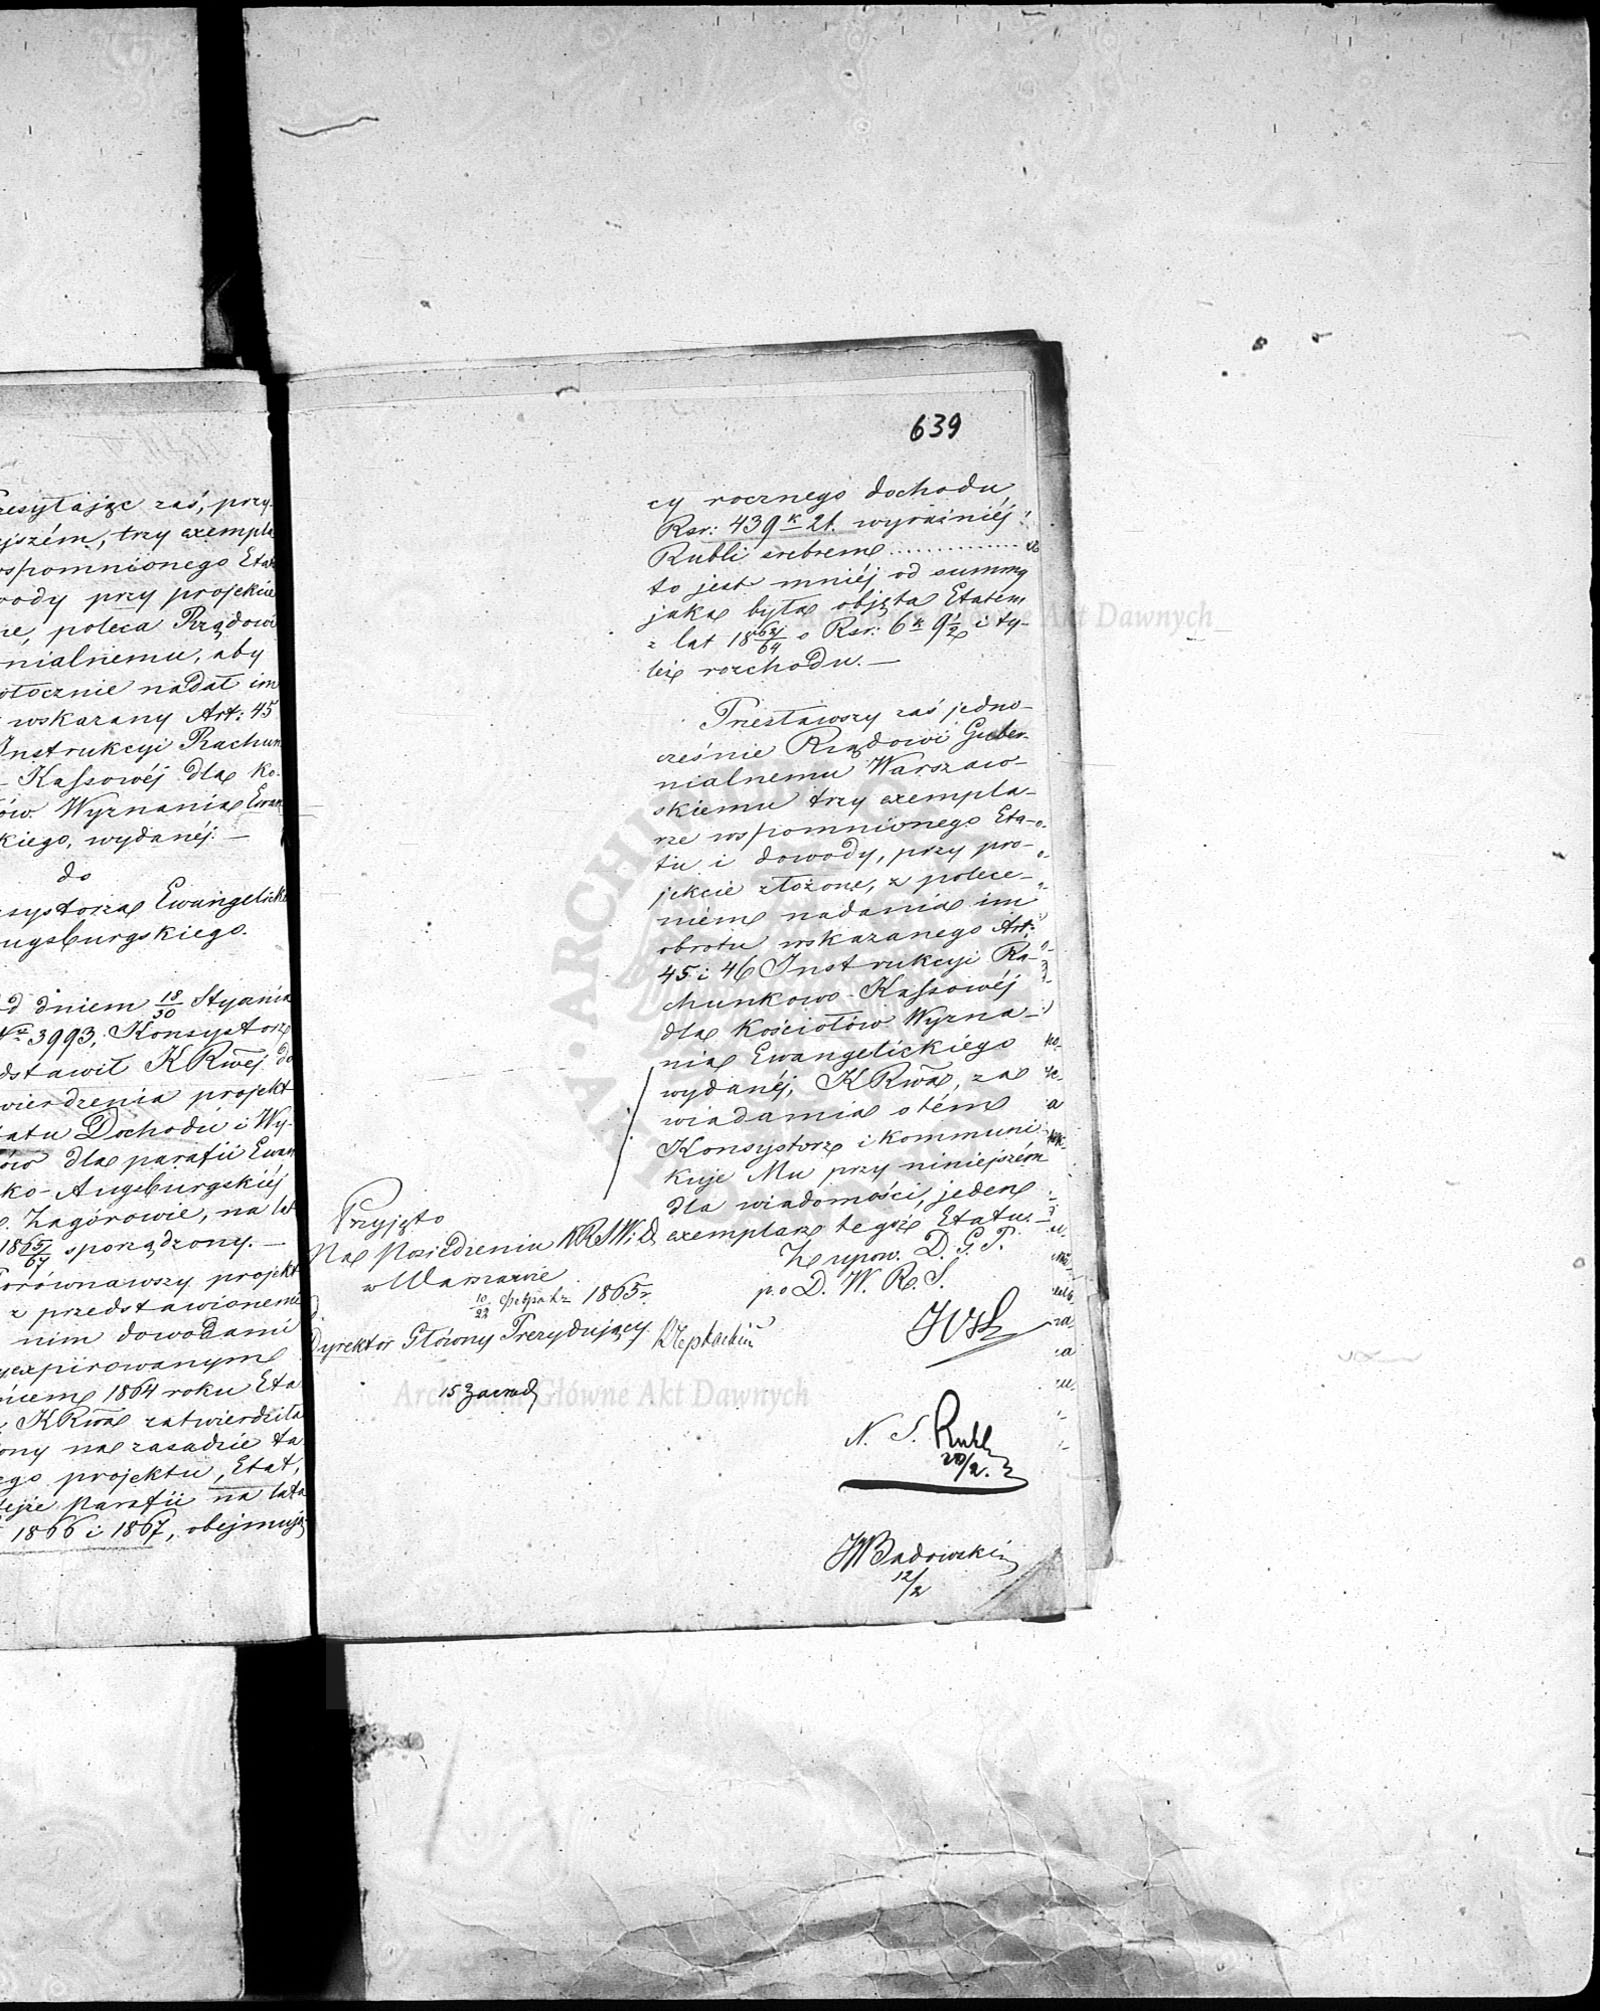 zaś, przy-
trzy exempla
wspomnionego Etat
przy projekcie
poleca Rządowi
nialnemu, aby
nadał im
wskazany Art: 45
Instrukcyi Rachun
Kassowéj dla ko-
Wyznania Ewan
kiego, wydanéj. —
do
Ewangelicko
ugsburgskiego.
dniem 18/30 Stycznia
Nr 3993, Konsystorz
dstawił KRwéj do
wierdzenia projekt
tatu Dochodu i Wy-
dla parafii Ewan
ko-Augsburgskiéj
Zagórowie, na lat
1865/67 sporządzony. —
Porównawszy projekt
z przedstawionemi
nim dowodami
expirowanym
1864 roku Eta
KRwa zatwierdziła
na zasadzie ta
ego projektu, Etat,
tejże Parafii na lata
1866 i 1867, obejmują
639
cy rocznego dochodu
Rsr: 439 k 21. wyraźniéj:
Rubli srebrem ..............
to jest mniéj od summy
jaka była objęta Etatem
z lat 1862/64 o Rsr: 6 k 9½ i ty-
leż rozchodu. —
Przesławszy zaś jedno-
cześnie Rządowi Guber-
nialnemu Warszaw-
skiemu trzy exempla-
rze wspomnionego Eta-
tu i dowody, przy pro-
jekcie złożone, z polece-
niem nadania im
obrotu wskazanego Art:
45 i 46 Instrukcyi Ra-
chunkowo-Kassowéj
dla Kościołów Wyzna-
nia Ewangelickiego
wydanéj, KRwa, za
wiadamia o tém
Konsystorz i kommuni-
kuje Mu przy niniejszém
dla wiadomości, jeden
exemplarz tegoż Etatu. —
Z upow. D. G. P.
p.o D. W. R. S.
Przyjęto
Na Posiedzeniu KRSWiD
w Warszawie
10/22 Февраля 1865 r.
Dyrektor Główny Prezydujący
N. S.
20/2.
Badowski
12/2
Archiwum Główne Akt Dawnych
Archiwum Główne Akt Dawnych